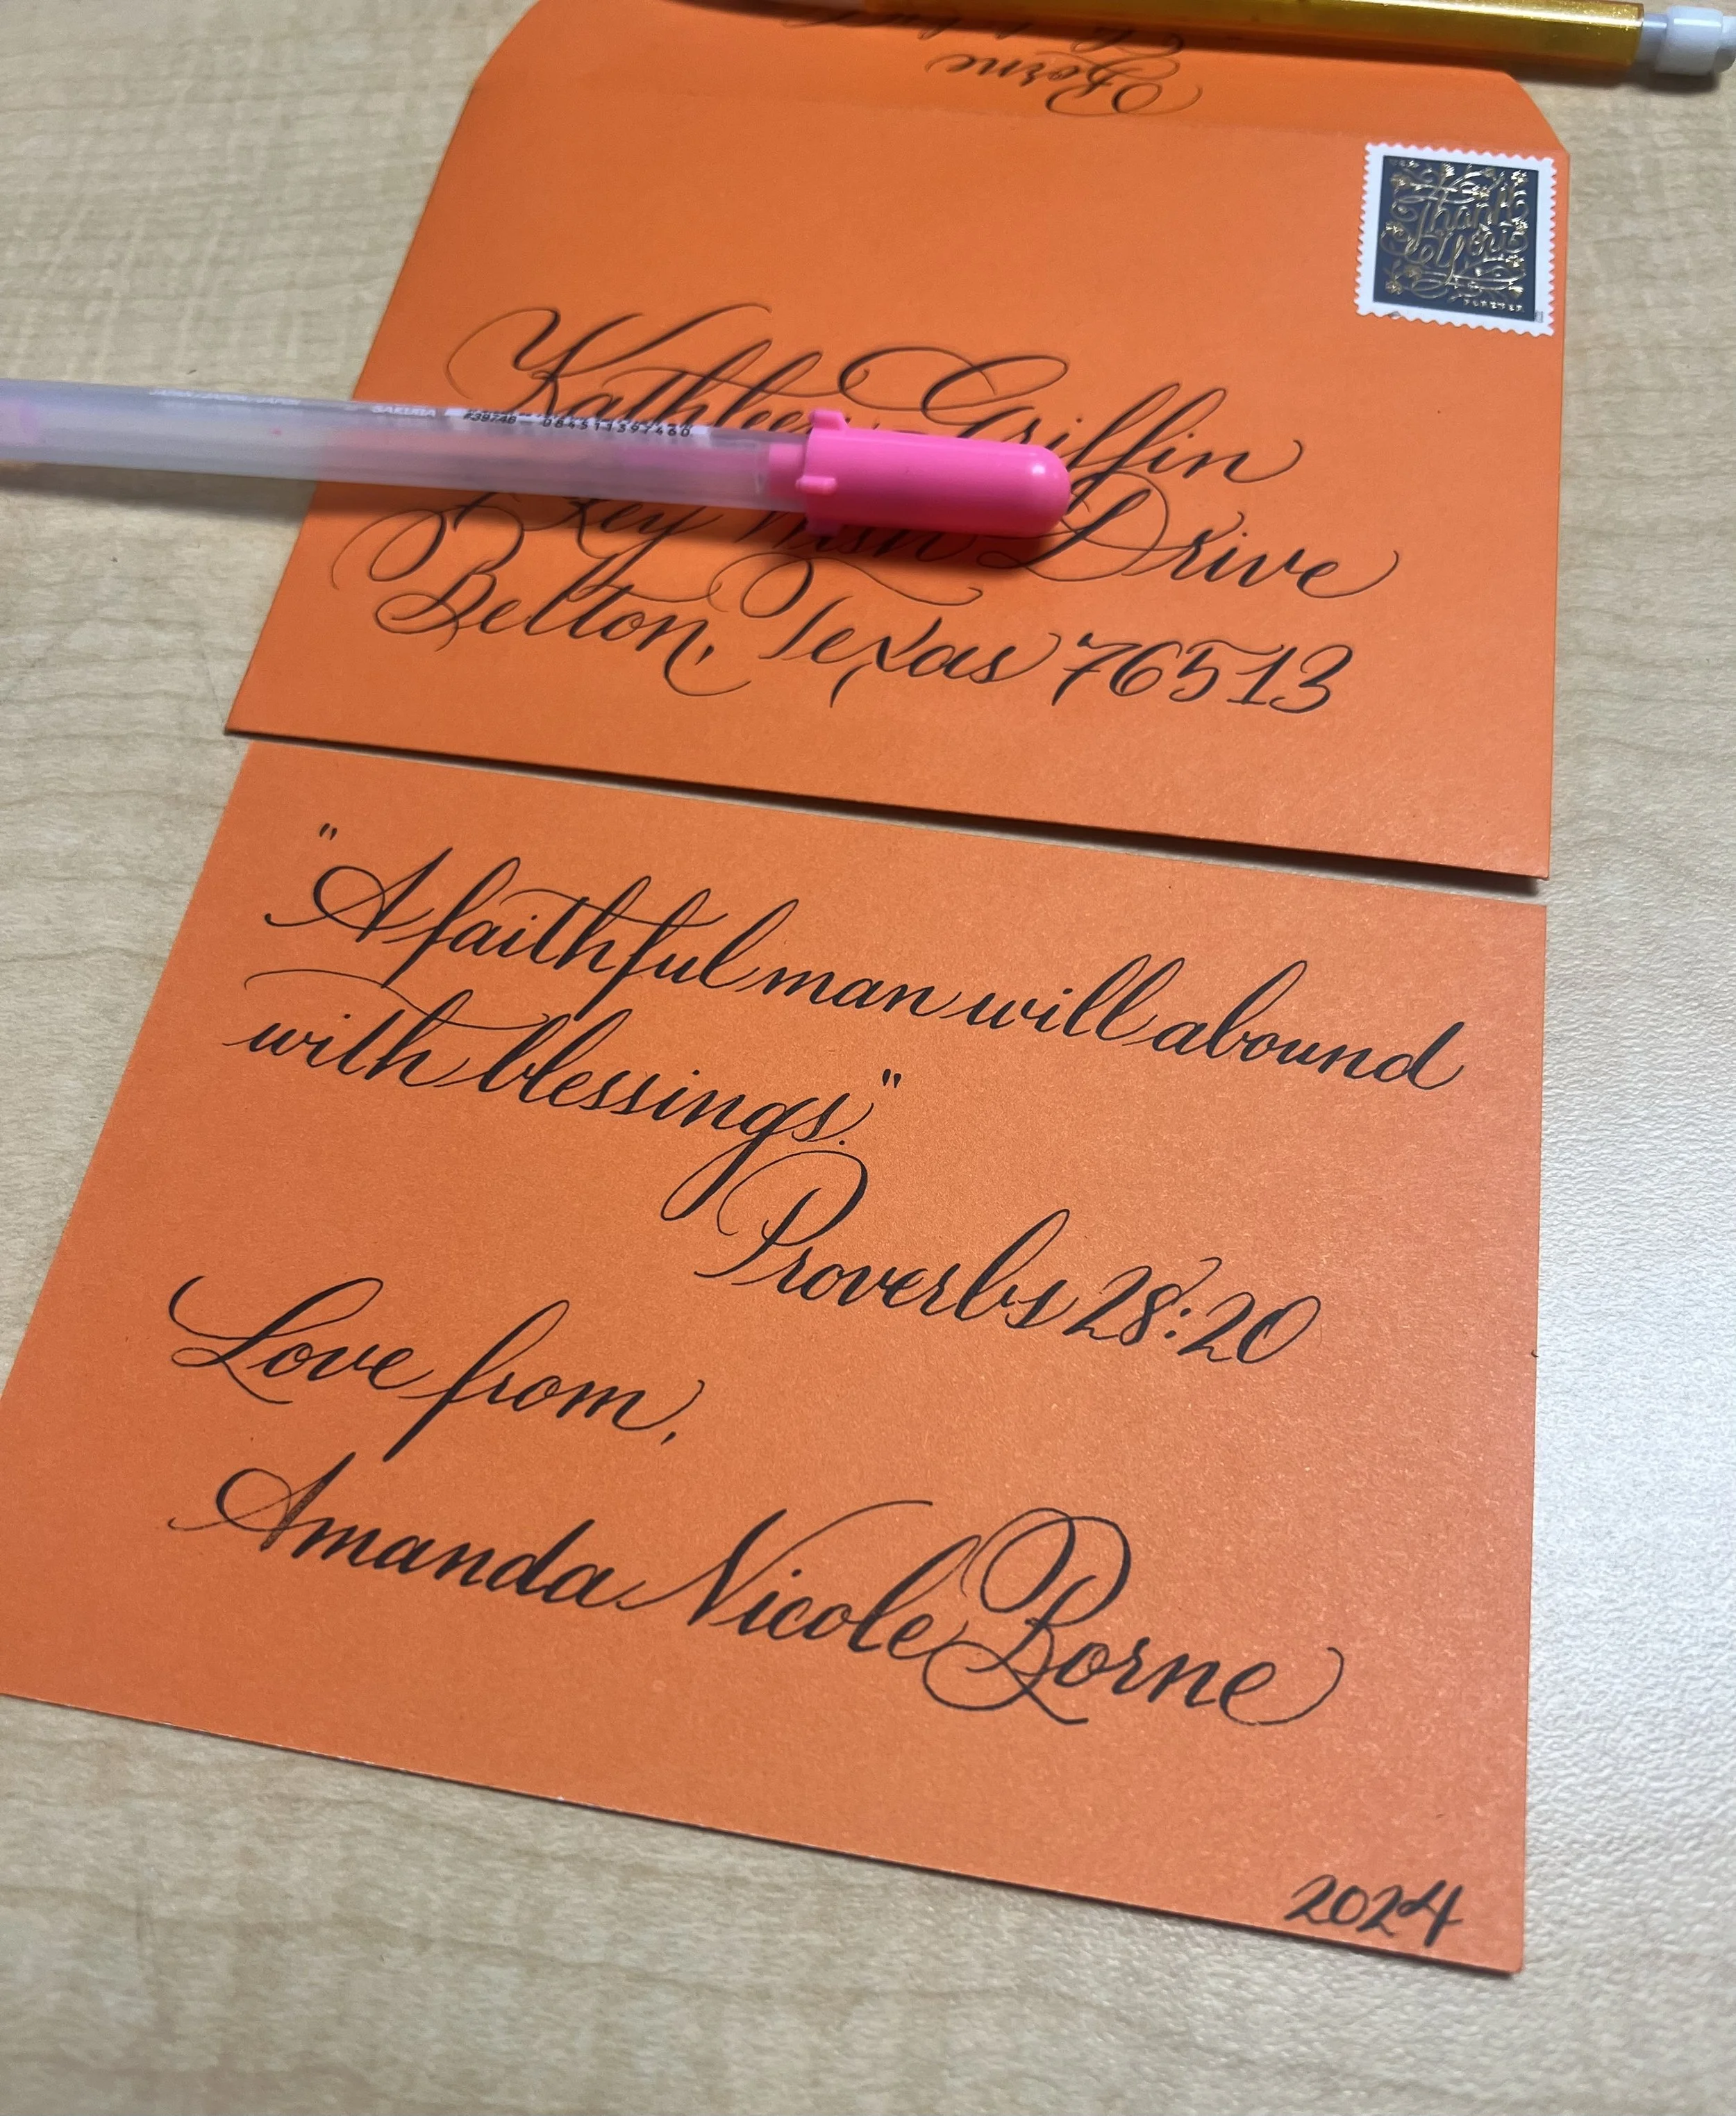 Borne
Thank
You
FOREVER
Kathleen Griffin
SAKURA
#38748 084511397460
Key Wish Drive
Belton, Texas 76513
"A faithful man will abound
with blessings."
Proverbs 28:20
Love from,
Amanda Nicole Borne
2024